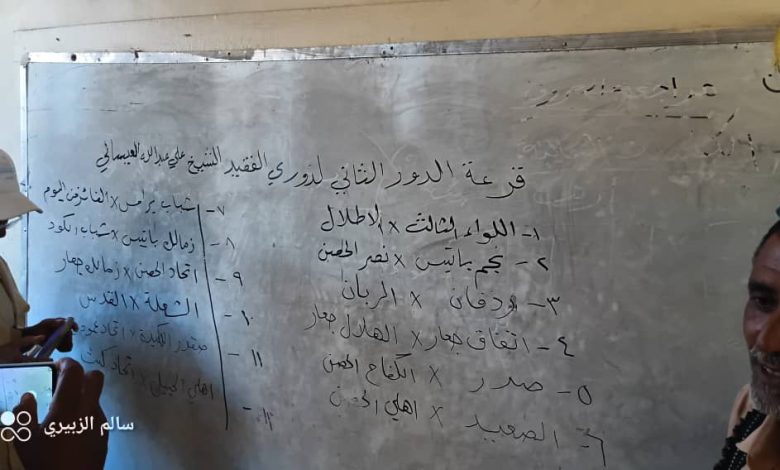 قرعة الدور الثاني لدوري الفقيد الشيخ علي عبدالله العيساني
١- اللواء الثالث × الاطلال
٢- نجم باتيس × نصر الحصن
٣- ودفان × الربان
٤- اتفاق جعار × الهلال جعار
٥- صدر × الكفاح الحصن
٦- الصعيد × اهلي الحصن
٧- شباب يرامس × الفائز من اليوم
٨- زمالك باتيس × شباب الكود
٩- اتحاد الحصن × زمالك جعار
١٠- الشعلة × القدس
١١- صقور × اتحاد
١٢- اهلي الجبيل × اتحاد
مراجعة
سالم الزبيري